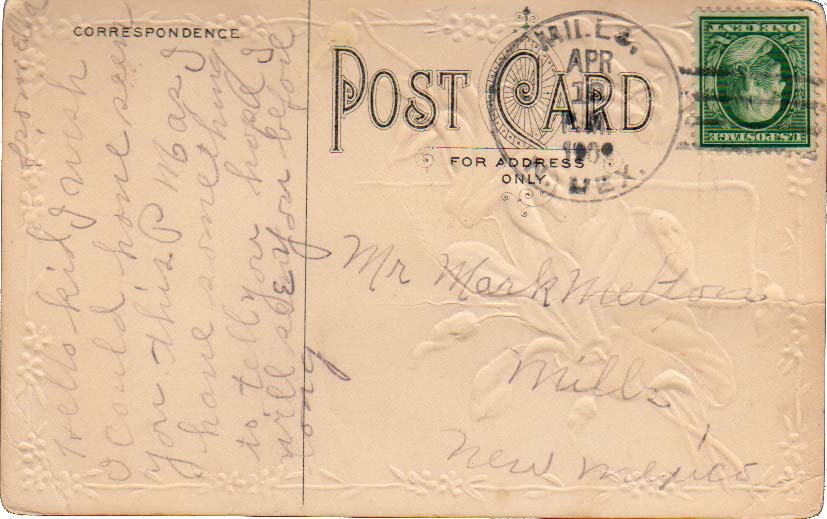 CORRESPONDENCE
POST CARD
FOR ADDRESS
ONLY.
MILLS,
APR
1909
N. MEX.
ONE CENT
U.S. POSTAGE
Hello kid I wish
I could hove seen
you this P M as I
have something
to tell you hope I
will see you before
long
from
Mr Mark Melton
Mills
New Mexico